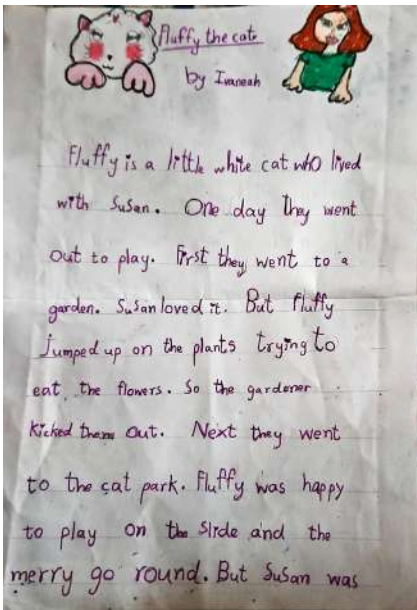 Fluffy the cat
by Ivaneah
Fluffy is a little white cat who lived
with Susan. One day they went
out to play. First they went to a
garden. Susan loved it. But Fluffy
jumped up on the plants trying to
eat the flowers. So the gardener
kicked them out. Next they went
to the cat park. Fluffy was happy
to play on the slide and the
merry go round. But Susan was